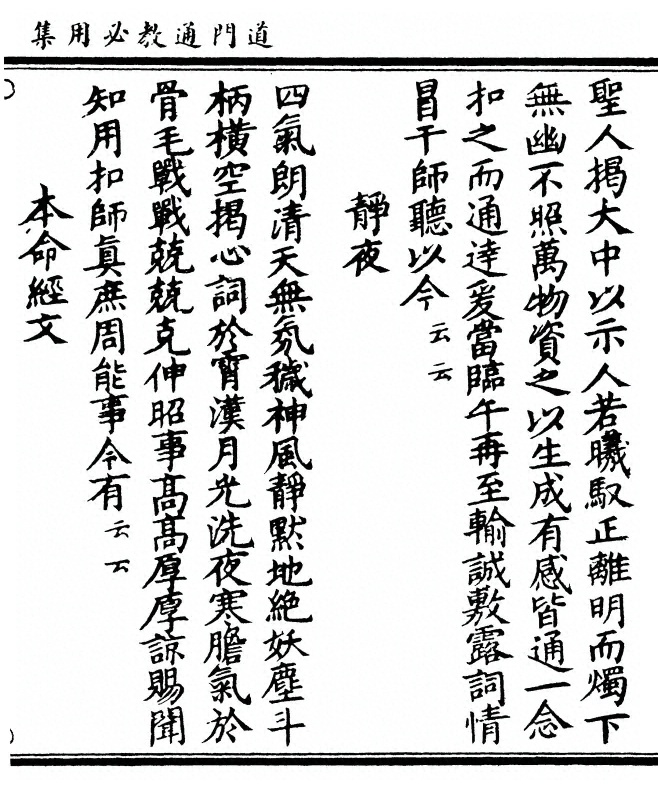 道門通教必用集
聖人揭大中以示人若曦馭正離明而燭下
無幽不照萬物資之以生成有感皆通一念
扣之而通逹爰當臨午再至輸誠敷露詞情
冒干師聽以今云云
靜夜
四氣朗清天無氛穢神風靜默地絶妖塵斗
柄橫空揭心詞於霄漢月光洗夜寒膽氣於
骨毛戰戰兢兢克伸昭事高高厚厚諒賜聞
知用扣師眞庶周能事今有云云
本命經文